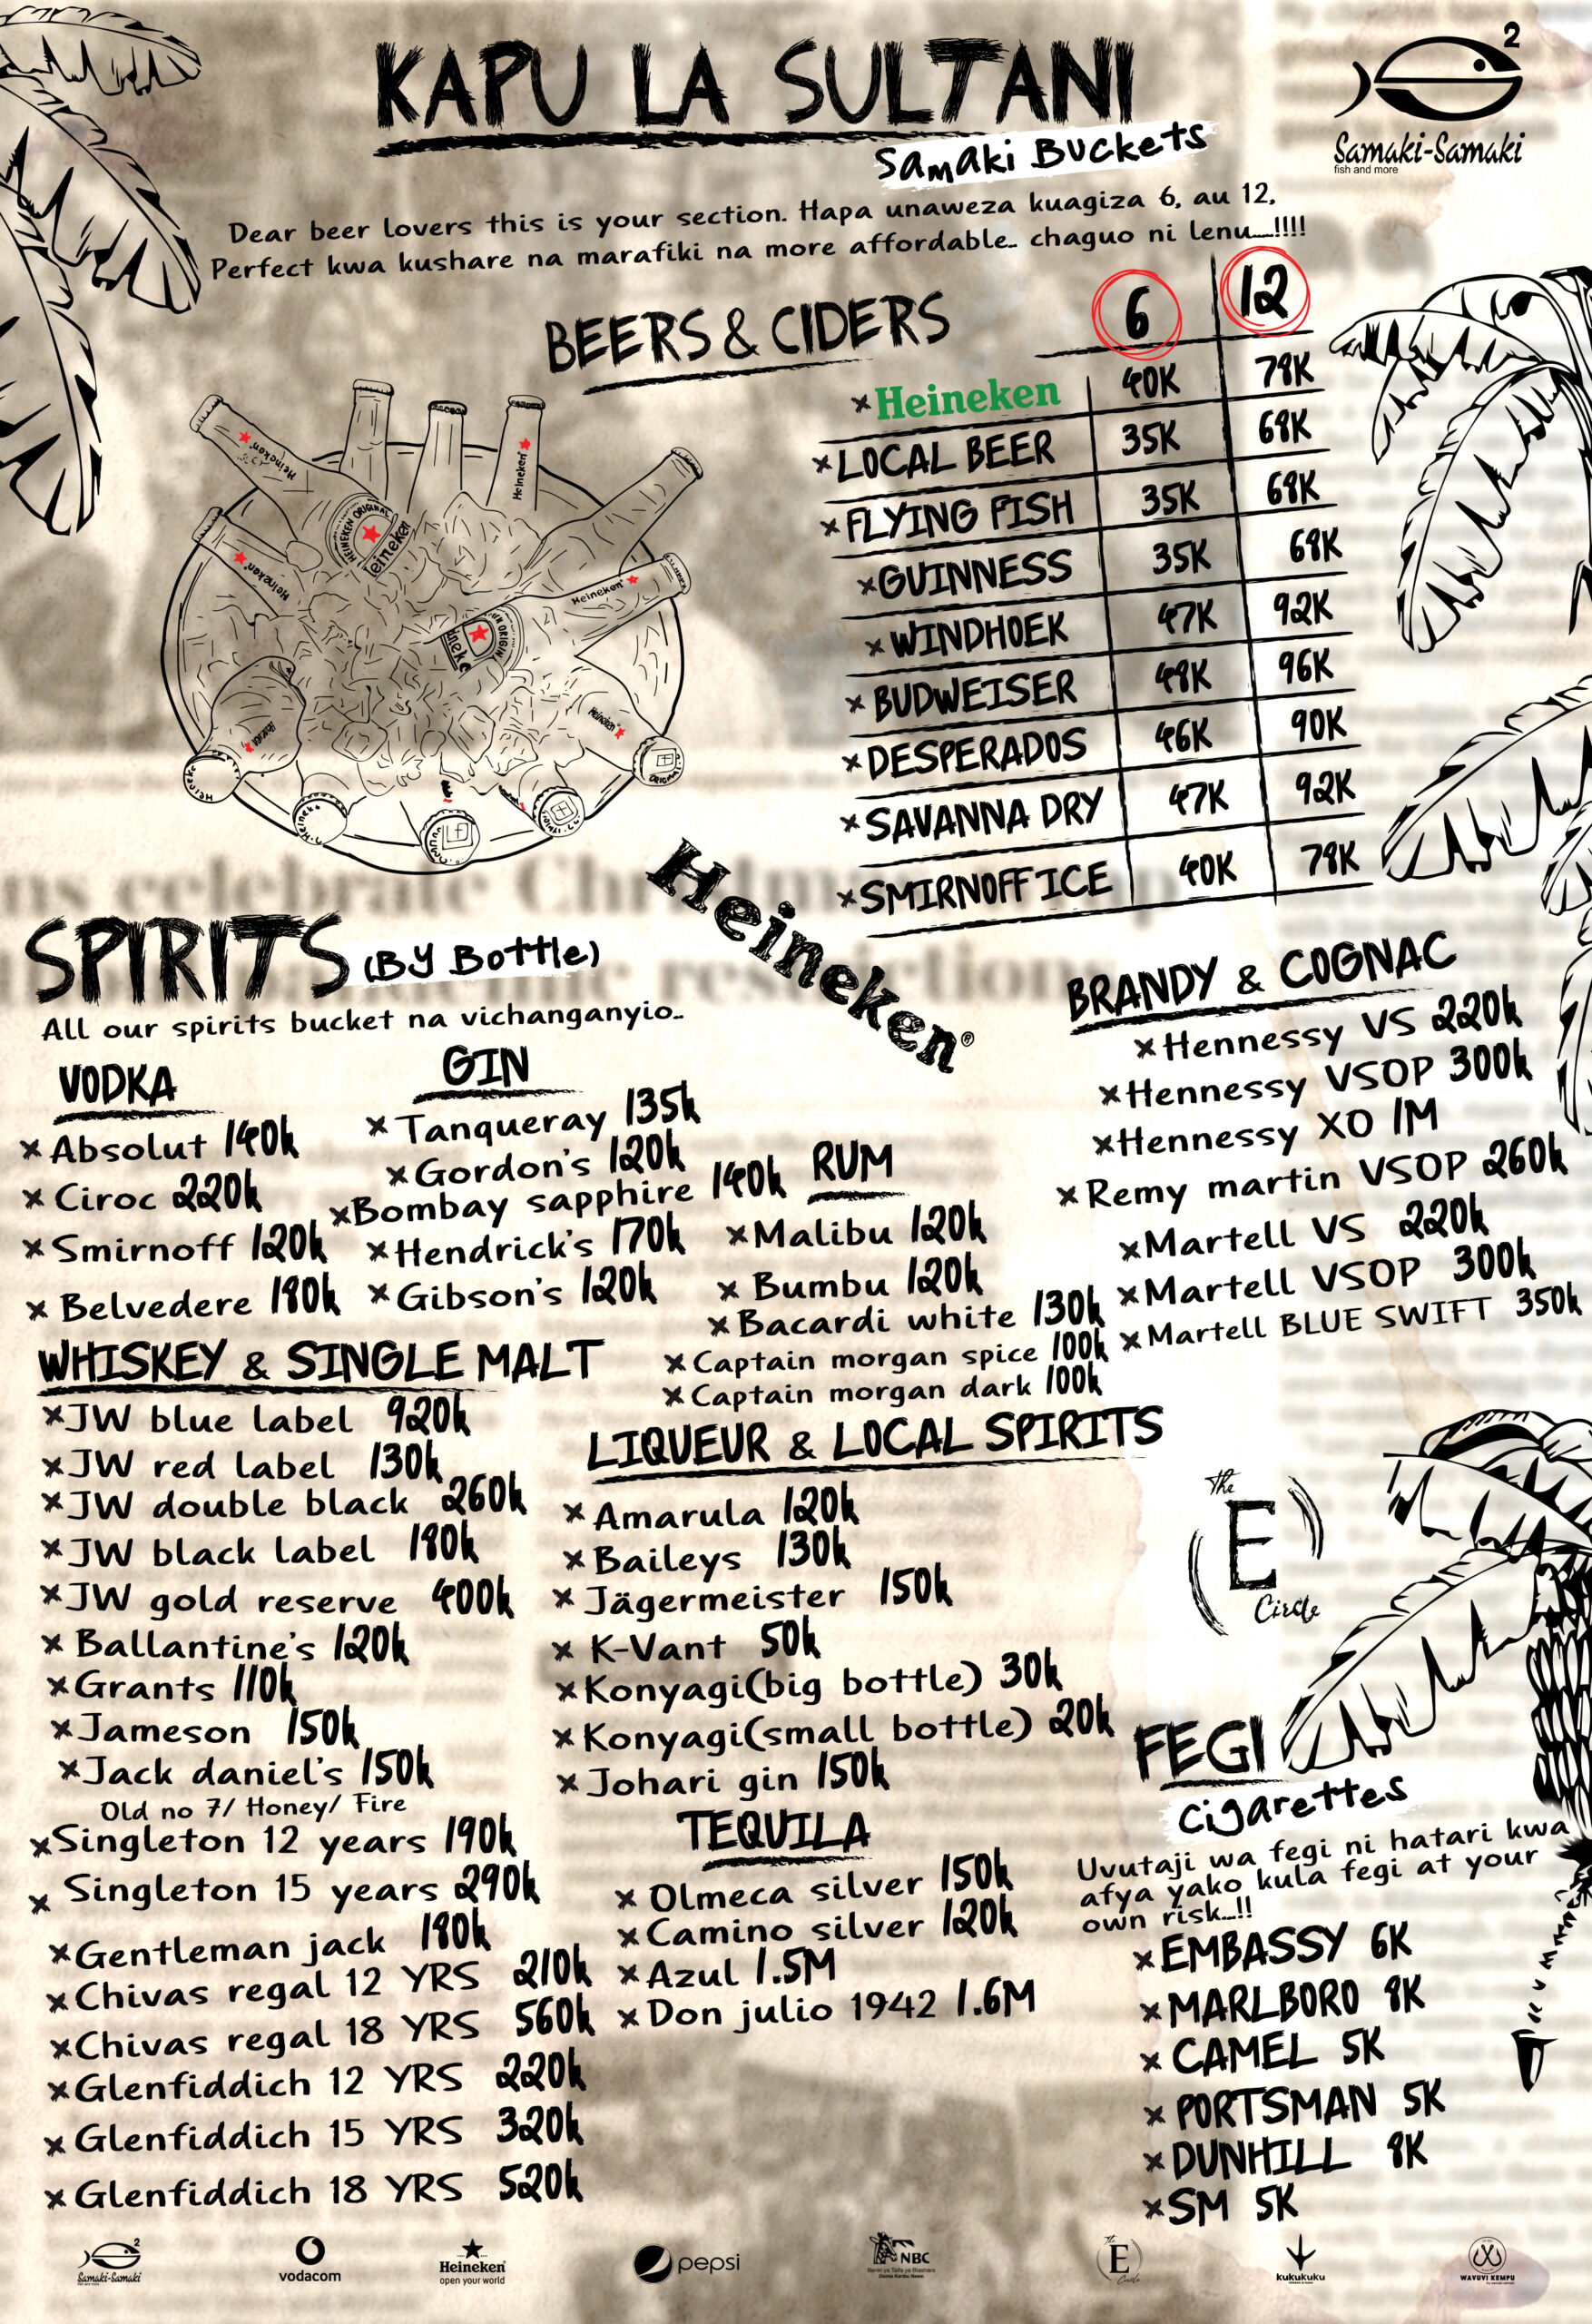 KAPU LA SULTANI
Samaki Buckets
2
Samaki-Samaki
fish and more
Dear beer lovers this is your section. Hapa unaweza kuagiza 6, au 12,
Perfect kwa kushare na marafiki na more affordable.. chaguo ni lenu.....!!!!
BEERS & CIDERS 6 12
×Heineken 40K 78K
×LOCAL BEER 35K 68K
×FLYING FISH 35K 68K
×GUINNESS 35K 68K
×WINDHOEK 47K 92K
×BUDWEISER 48K 96K
×DESPERADOS 46K 90K
×SAVANNA DRY 47K 92K
×SMIRNOFF ICE 40K 78K
Heineken®
SPIRITS (By Bottle)
All our spirits bucket na vichanganyio..
VODKA
×Absolut 140k
×Ciroc 220k
×Smirnoff 120k
×Belvedere 180k
GIN
×Tanqueray 135k
×Gordon's 120k
×Bombay sapphire 140k
×Hendrick's 170k
×Gibson's 120k
RUM
×Malibu 120k
×Bumbu 120k
×Bacardi white 130k
×Captain morgan spice 100k
×Captain morgan dark 100k
BRANDY & COGNAC
×Hennessy VS 220k
×Hennessy VSOP 300k
×Hennessy XO 1M
×Remy martin VSOP 260k
×Martell VS 220k
×Martell VSOP 300k
×Martell BLUE SWIFT 350k
WHISKEY & SINGLE MALT
×JW blue label 920k
×JW red label 130k
×JW double black 260k
×JW black label 180k
×JW gold reserve 400k
×Ballantine's 120k
×Grants 110k
×Jameson 150k
×Jack daniel's 150k
Old no 7/ Honey/ Fire
×Singleton 12 years 190k
×Singleton 15 years 290k
×Gentleman jack 180k
×Chivas regal 12 YRS 210k
×Chivas regal 18 YRS 560k
×Glenfiddich 12 YRS 220k
×Glenfiddich 15 YRS 320k
×Glenfiddich 18 YRS 520k
LIQUEUR & LOCAL SPIRITS
×Amarula 120k
×Baileys 130k
×Jägermeister 150k
×K-Vant 50k
×Konyagi(big bottle) 30k
×Konyagi(small bottle) 20k
×Johari gin 150k
TEQUILA
×Olmeca silver 150k
×Camino silver 120k
×Azul 1.5M
×Don julio 1942 1.6M
The
E
Circle
FEGI
cigarettes
Uvutaji wa fegi ni hatari kwa
afya yako kula fegi at your
own risk...!!
×EMBASSY 6K
×MARLBORO 8K
×CAMEL 5K
×PORTSMAN 5K
×DUNHILL 8K
×SM 5K
Samaki-Samaki
vodacom
Heineken
open your world
pepsi
NBC
The
E
Circle
kukukuku
WAVUVI KEMPU